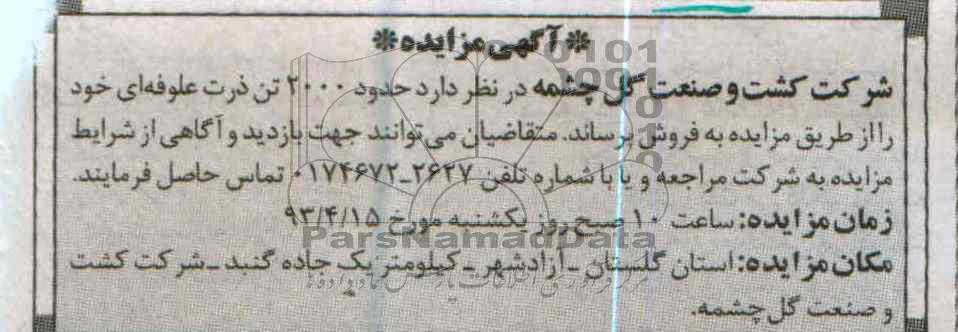 ❊آگهی مزایده❊
شرکت کشت و صنعت گل چشمه در نظر دارد حدود ۲۰۰۰ تن ذرت علوفه‌ای خود
را از طریق مزایده به فروش برساند. متقاضیان می‌توانند جهت بازدید و آگاهی از شرایط
مزایده به شرکت مراجعه و یا با شماره تلفن ۲۶۲۷-۰۱۷۴۶۷۲ تماس حاصل فرمایند.
زمان مزایده: ساعت ۱۰ صبح روز یکشنبه مورخ ۹۳/۴/۱۵
مکان مزایده: استان گلستان - آزادشهر - کیلومتر یک جاده گنبد - شرکت کشت
و صنعت گل چشمه.
ParsNamadData